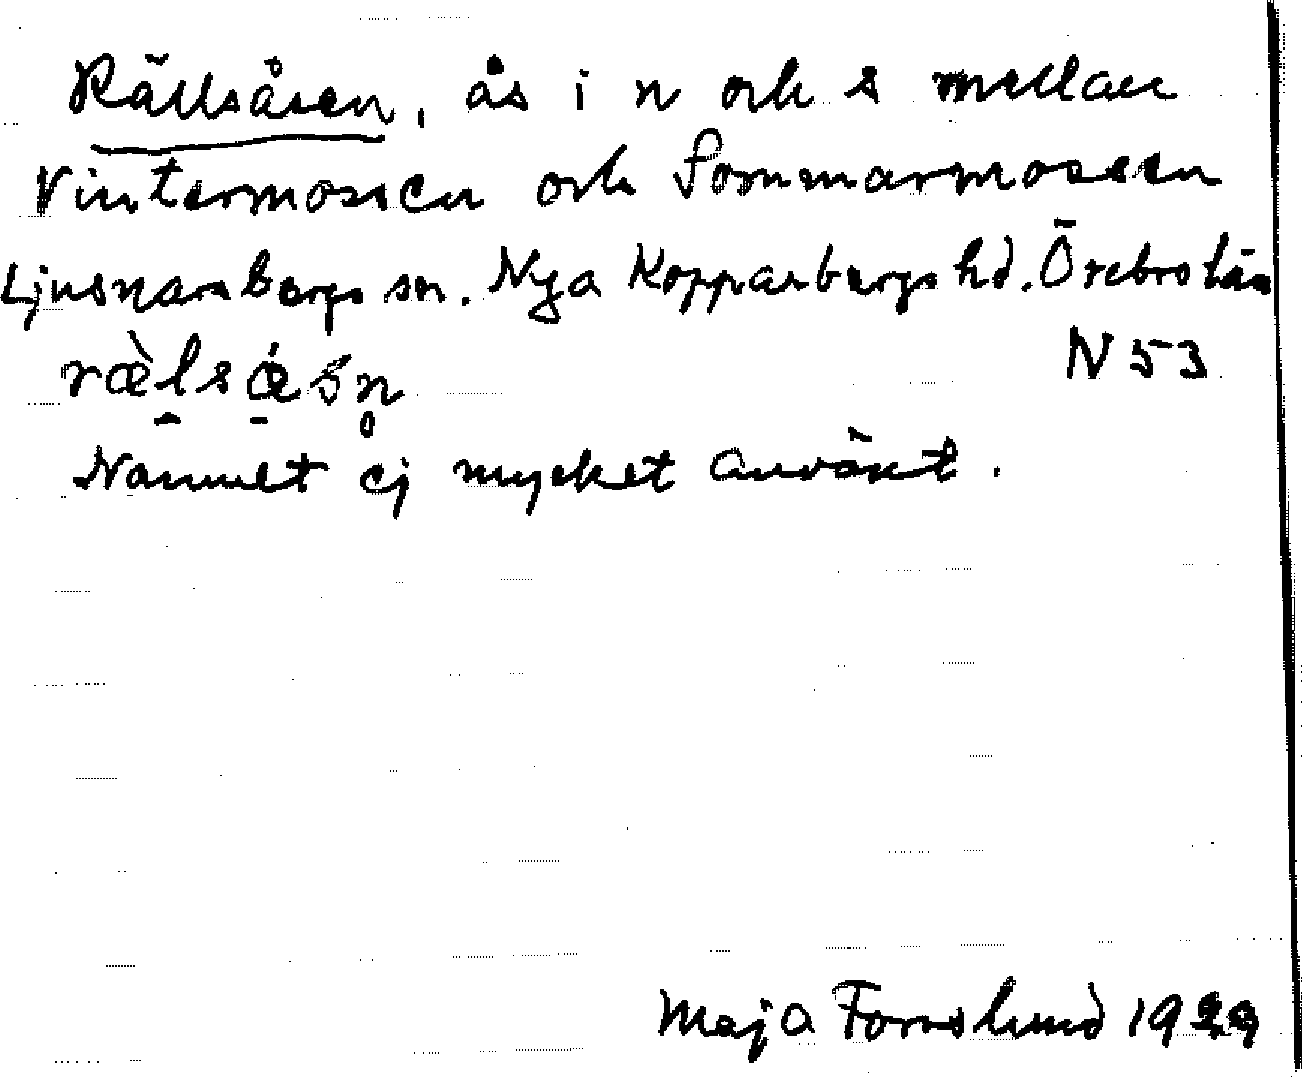 Rällsåsen, ås i n och s mellan
Vintermossen och Sommarmossen
Ljusnarsbergs sn. Nya Kopparbergs hd. Örebro län
N 53
Namnet ej mycket använt.
Maja Forsslund 1929